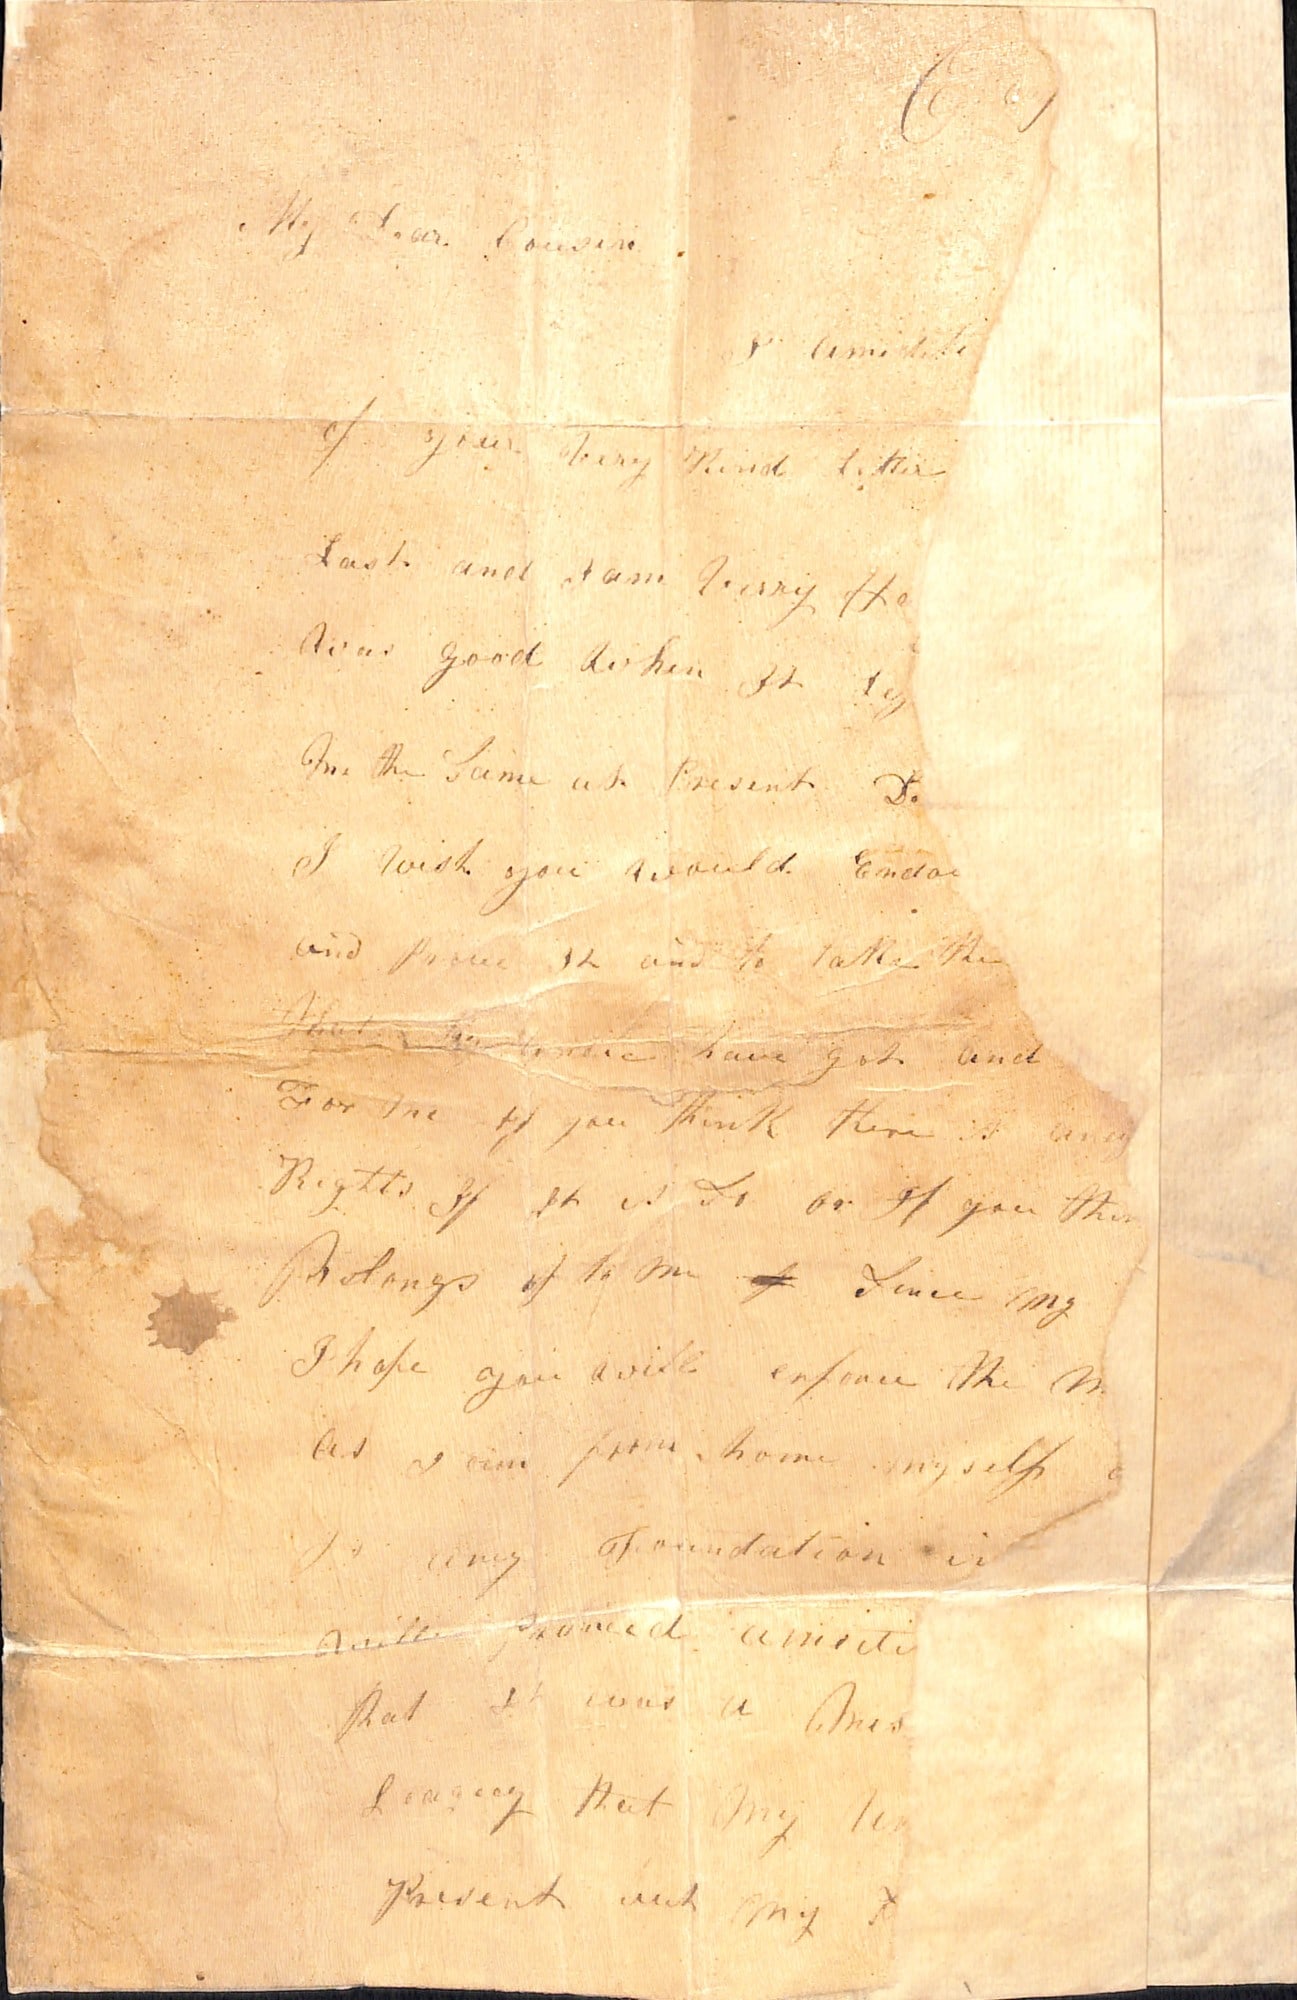 My Dear Cousin
I
of your Very Kind Letter
Last and I am Verry Ha
Was good When It
Me the Same at Present
I wish you would Endor
and Prove It and to take the
That my Uncle have got and
For me if you think there is any
Rights If It is So or If you thin
Belongs of to me Since My
I hope you will enforce the M
as I am from home myself
any Foundation
will proveed
that It was a Mis
Leagey that My Un
Present but My